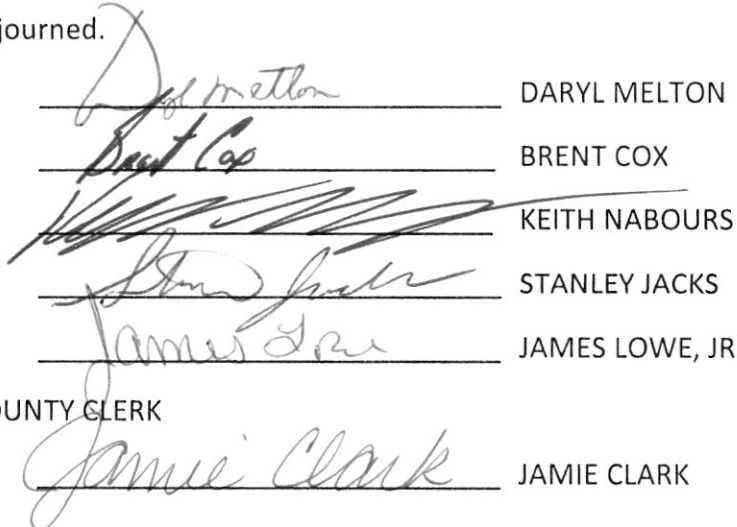 journed.
Daryl Melton DARYL MELTON
Brent Cox BRENT COX
KEITH NABOURS
Stan Jacks STANLEY JACKS
James Lowe JAMES LOWE, JR
OUNTY CLERK
Jamie Clark JAMIE CLARK